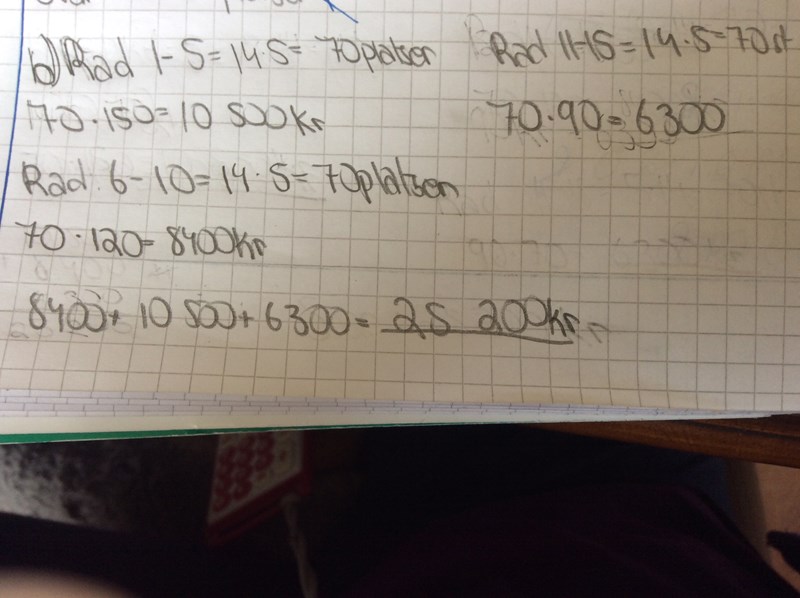 b) Rad 1-5=14·5= 70platser
70·150=10 500Kr
Rad 11-15=14·5=70st
70·90=6300
Rad 6-10=14·5=70platser
70·120=8400Kr
8400+10 500+6300=25 200kr